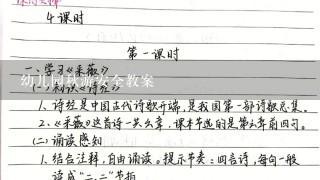 4课时
第一课时
一、学习《采薇》
幼儿园秋游安全教案
(一)初识《诗经》
1、诗经是中国古代诗歌开端,是我国第一部诗歌总集。
2、《采薇》这首诗一共六章,课本节选的是第六章前四句。
(二)诵读感知
1、结合注释,自由诵读。提示节奏:四言诗,每句一般
读成"二、二"节拍